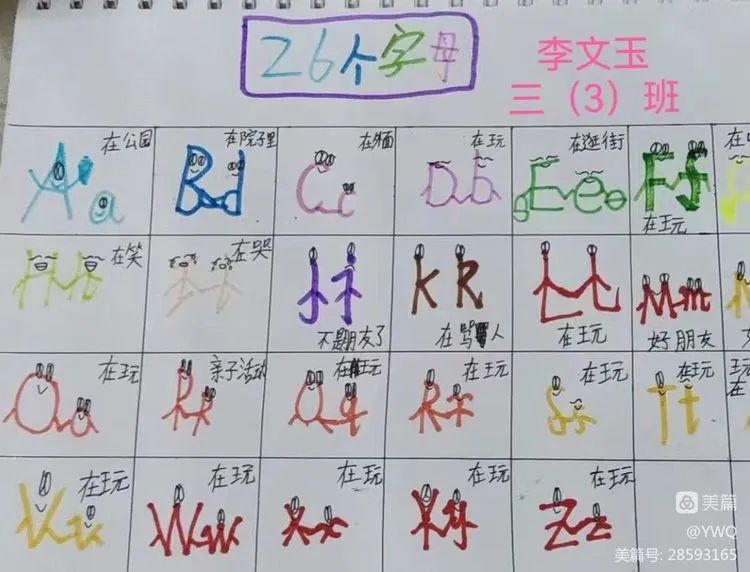 26个字母
李文玉
三（3）班
在公园
在院子里
在外面
在玩
在逛街
在玩
Aa
Bd
Cc
Db
Ee
Ff
在笑
在哭
不是朋友了
在骂人
在玩
好朋友
Hh
Ii
Jj
KR
LL
Mm
在玩
亲子活动
在玩
在玩
在玩
在玩
玩
在
Oa
Pp
Qq
Rr
Ss
Tt
在玩
在玩
在玩
在玩
在玩
Vv
Ww
Xx
Yy
Zz
美篇
@YWQ
美篇号: 28593165